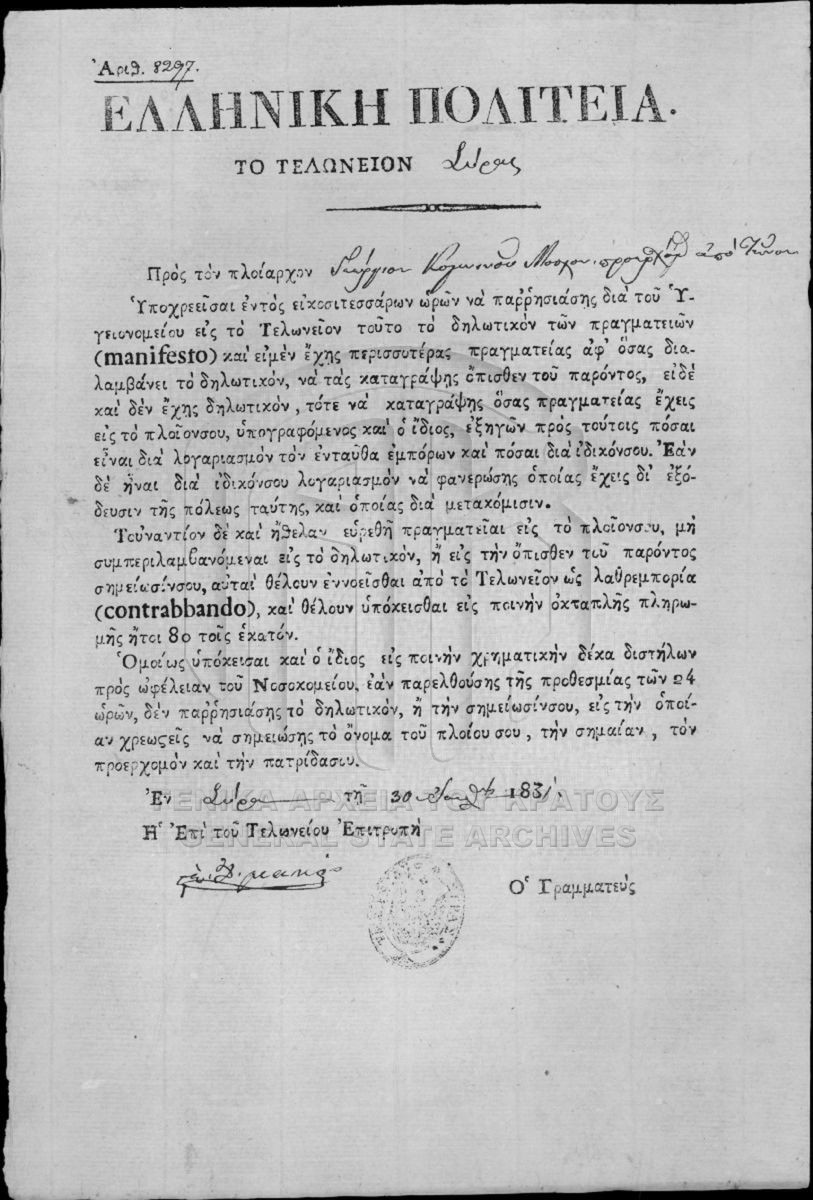 Ἀριθ. 8297.
ΕΛΛΗΝΙΚΗ ΠΟΛΙΤΕΙΑ.
ΤΟ ΤΕΛΩΝΕΙΟΝ Σύρας
Πρὸς τὸν πλοίαρχον Γεώργιον ἀπὸ Τῆνον
Ὑποχρεεῖσαι ἐντὸς εἰκοσιτεσσάρων ὡρῶν νὰ παῤῥησιάσῃς διὰ τοῦ Ὑ-
γειονομείου εἰς τὸ Τελωνεῖον τοῦτο τὸ δηλωτικὸν τῶν πραγματειῶν
(manifesto) καὶ εἰμὲν ἔχῃς περισσοτέρας πραγματείας ἀφ' ὅσας δια-
λαμβάνει τὸ δηλωτικὸν, νὰ τὰς καταγράψῃς ὄπισθεν τοῦ παρόντος, εἰδὲ
καὶ δὲν ἔχῃς δηλωτικὸν, τότε νὰ καταγράψῃς ὅσας πραγματείας ἔχεις
εἰς τὸ πλοῖονσου, ὑπογραφόμενος καὶ ὁ ἴδιος, ἐξηγῶν πρὸς τούτοις πόσαι
εἶναι διὰ λογαριασμὸν τὸν ἐνταῦθα ἐμπόρων καὶ πόσαι διὰ ἰδικόνσου. Ἐὰν
δὲ ἦναι διὰ ἰδικόνσου λογαριασμὸν νὰ φανερώσῃς ὁποίας ἔχεις δι' ἐξό-
δευσιν τῆς πόλεως ταύτης, καὶ ὁποίας διὰ μετακόμισιν.
Τοὐναντίον δὲ καὶ ἤθελαν εὑρεθῆ πραγματεῖαι εἰς τὸ πλοῖονσου, μὴ
συμπεριλαμβανόμεναι εἰς τὸ δηλωτικὸν, ἢ εἰς τὴν ὄπισθεν τοῦ παρόντος
σημείωσίνσου, αὗται θέλουν ἐννοεῖσθαι ἀπὸ τὸ Τελωνεῖον ὡς λαθρεμπορία
(contrabbando), καὶ θέλουν ὑπόκεισθαι εἰς ποινὴν ὀκταπλῆς πληρω-
μῆς ἤτοι 80 τοῖς ἑκατόν.
Ὁμοίως ὑπόκεισαι καὶ ὁ ἴδιος εἰς ποινὴν χρηματικὴν δέκα διστήλων
πρὸς ὠφέλειαν τοῦ Νοσοκομείου, ἐὰν παρελθούσης τῆς προθεσμίας τῶν 24
ὡρῶν, δὲν παῤῥησιάσῃς τὸ δηλωτικὸν, ἢ τὴν σημείωσίνσου, εἰς τὴν ὁποί-
αν χρεωςεῖς νὰ σημειώσῃς τὸ ὄνομα τοῦ πλοίου σου, τὴν σημαίαν, τὸν
προερχομὸν καὶ τὴν πατρίδασου.
Ἐν Σύρα τῇ 30 1831
Ἡ Ἐπὶ τοῦ Τελωνείου Ἐπιτροπὴ
Ὁ Γραμματεὺς
ΓΕΝΙΚΑ ΑΡΧΕΙΑ ΤΟΥ ΚΡΑΤΟΥΣ
GENERAL STATE ARCHIVES